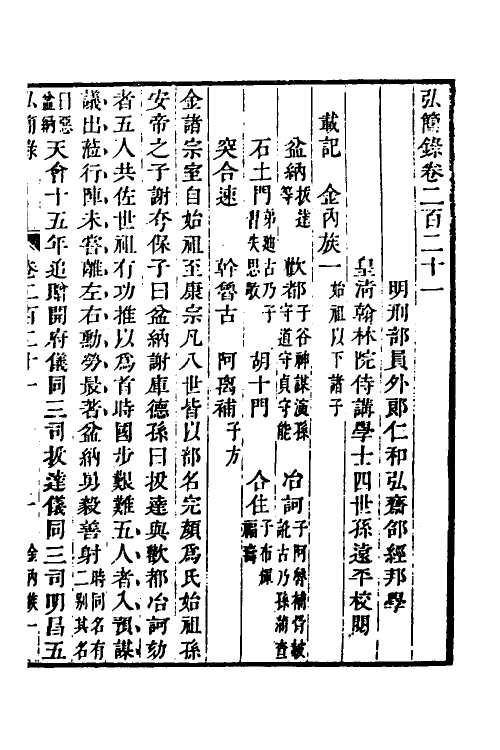 弘簡錄卷二百二十一
明刑部員外郎仁和弘齋邵經邦學
皇清翰林院侍講學士四世孫遠平校閱
載記　金內族一　始祖以下諸子
盆納等拔達　歡都子谷神謀演孫守道守貞守能　冶訶子阿魯補骨赧訛古乃孫蒲查
石土門弟迪古乃子習失思敬　胡十門　合住子布輝
突合速　斡魯古　阿离補子方
金諸宗室自始祖至康宗凡八世皆以部名完顏為氏始祖孫
安帝之子謝夸保子曰盆納謝庫德孫曰拔達與歡都冶訶劾
者五人共佐世祖有功推以為首時國步艱難五人者入預謀
議出蒞行陣未嘗離左右勳勞最著盆納勇毅善射時同名有二別其名
曰惡盆納天會十五年追贈開府儀同三司拔達儀同三司明昌五
弘簡錄　卷二百二十一　一　金內族一